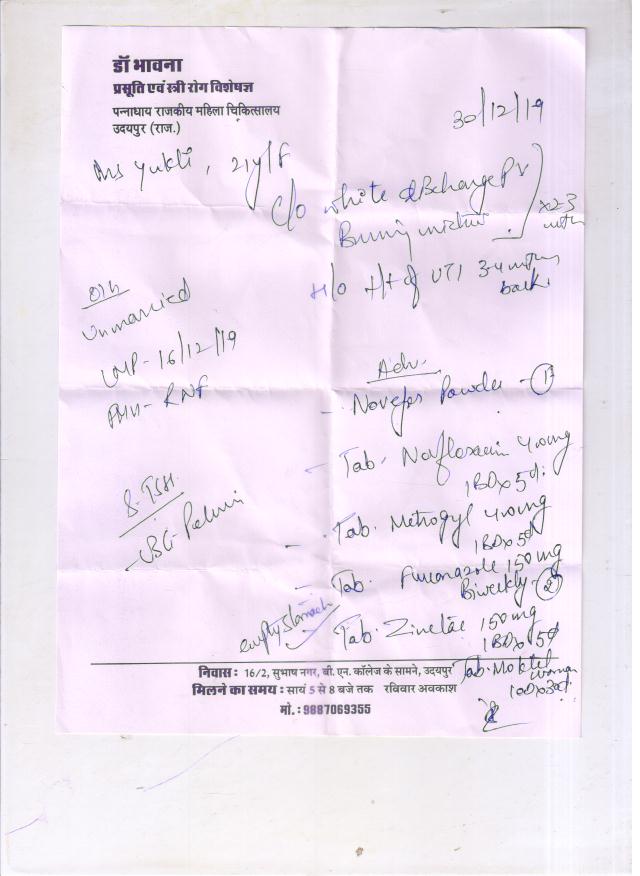 डॉ भावना
प्रसूति एवं स्त्री रोग विशेषज्ञ
पन्नाधाय राजकीय महिला चिकित्सालय
उदयपुर (राज.)
30/12/19
Ms Yukti, 21y/F
C/o white discharge PV
Burning mictur. x2-3
H/o t/t of UTI 3-4 mths
back.
O/H
Unmarried
LMP- 16/12/19
PMH- RNF
Adv.
- Powder - 1
- Tab. Norfloxacin 400mg
1BD x 5d.
S. TSH.
- USG- Pelvis
- Tab. Metrogyl 400mg
1BD x 5d
- Tab. 150mg
Biweekly - 2
empty stomach
Tab. 150mg
1BD x 5d
निवास : 16/2, सुभाष नगर, बी. एन. कॉलेज के सामने, उदयपुर
Tab. woman
1OD x 30d.
मिलने का समय : सायं 5 से 8 बजे तक रविवार अवकाश
मो. : 9887069355